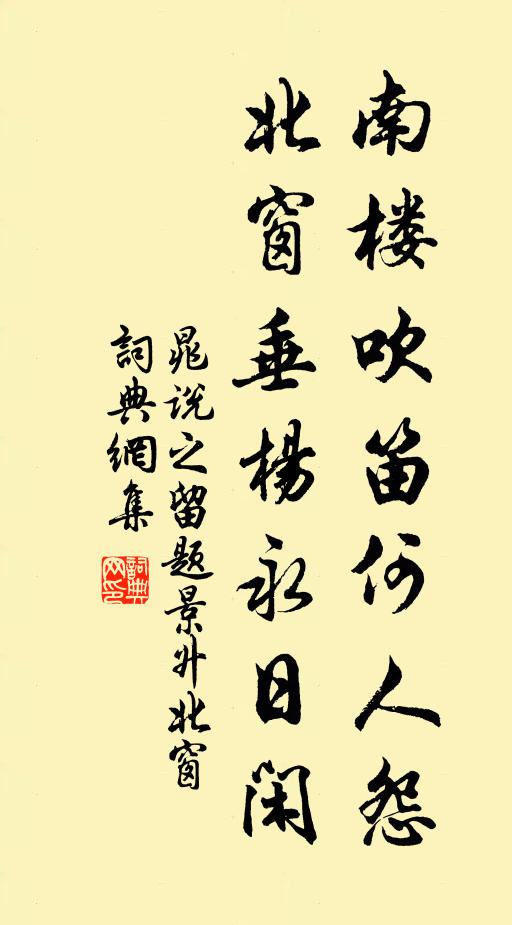 南楼吹笛何人怨
北窗垂楊永日閑
晁说之留题景升北窗
詞典網集
詞典网印